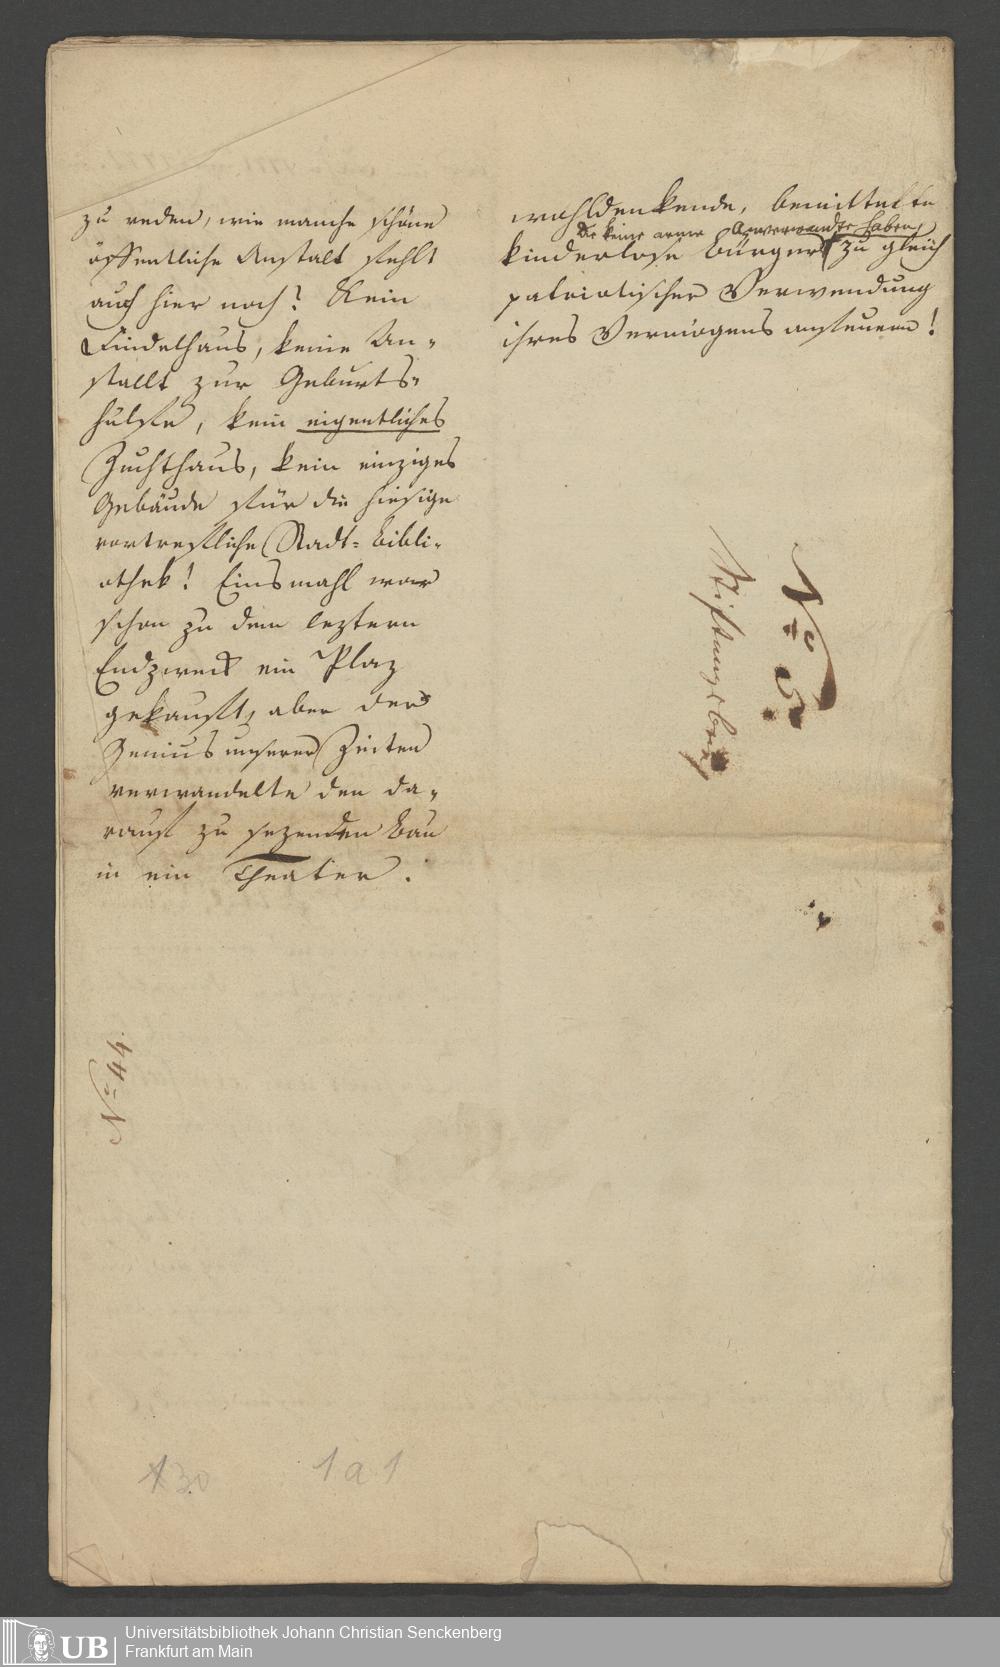 zu reden, wie manche schöne
öffentliche Anstalt fehlt
auch hier noch? Kein
Findelhaus, keine An-
stallt zur Geburts-
hülfe, kein eigentliches
Zuchthaus, kein einziges
Gebäude für die hiesige
vortrefliche Stadt-Bibli-
othek! Einsmahl war
schon zu dem leztern
Endzweck ein Plaz
gekauft, aber der
Genius unserer Zeiten
verwandelte den da-
rauf zu sezenden Bau
in ein Theater.
wohldenkende, bemittelte
die keine arme Anverwandte haben,
kinderlose Bürger zu gleich
patriotischer Verwendung
ihres Vermögens anfeuern!
No 5.
N. 44.
130
1 a 1
UB
Universitätsbibliothek Johann Christian Senckenberg
Frankfurt am Main